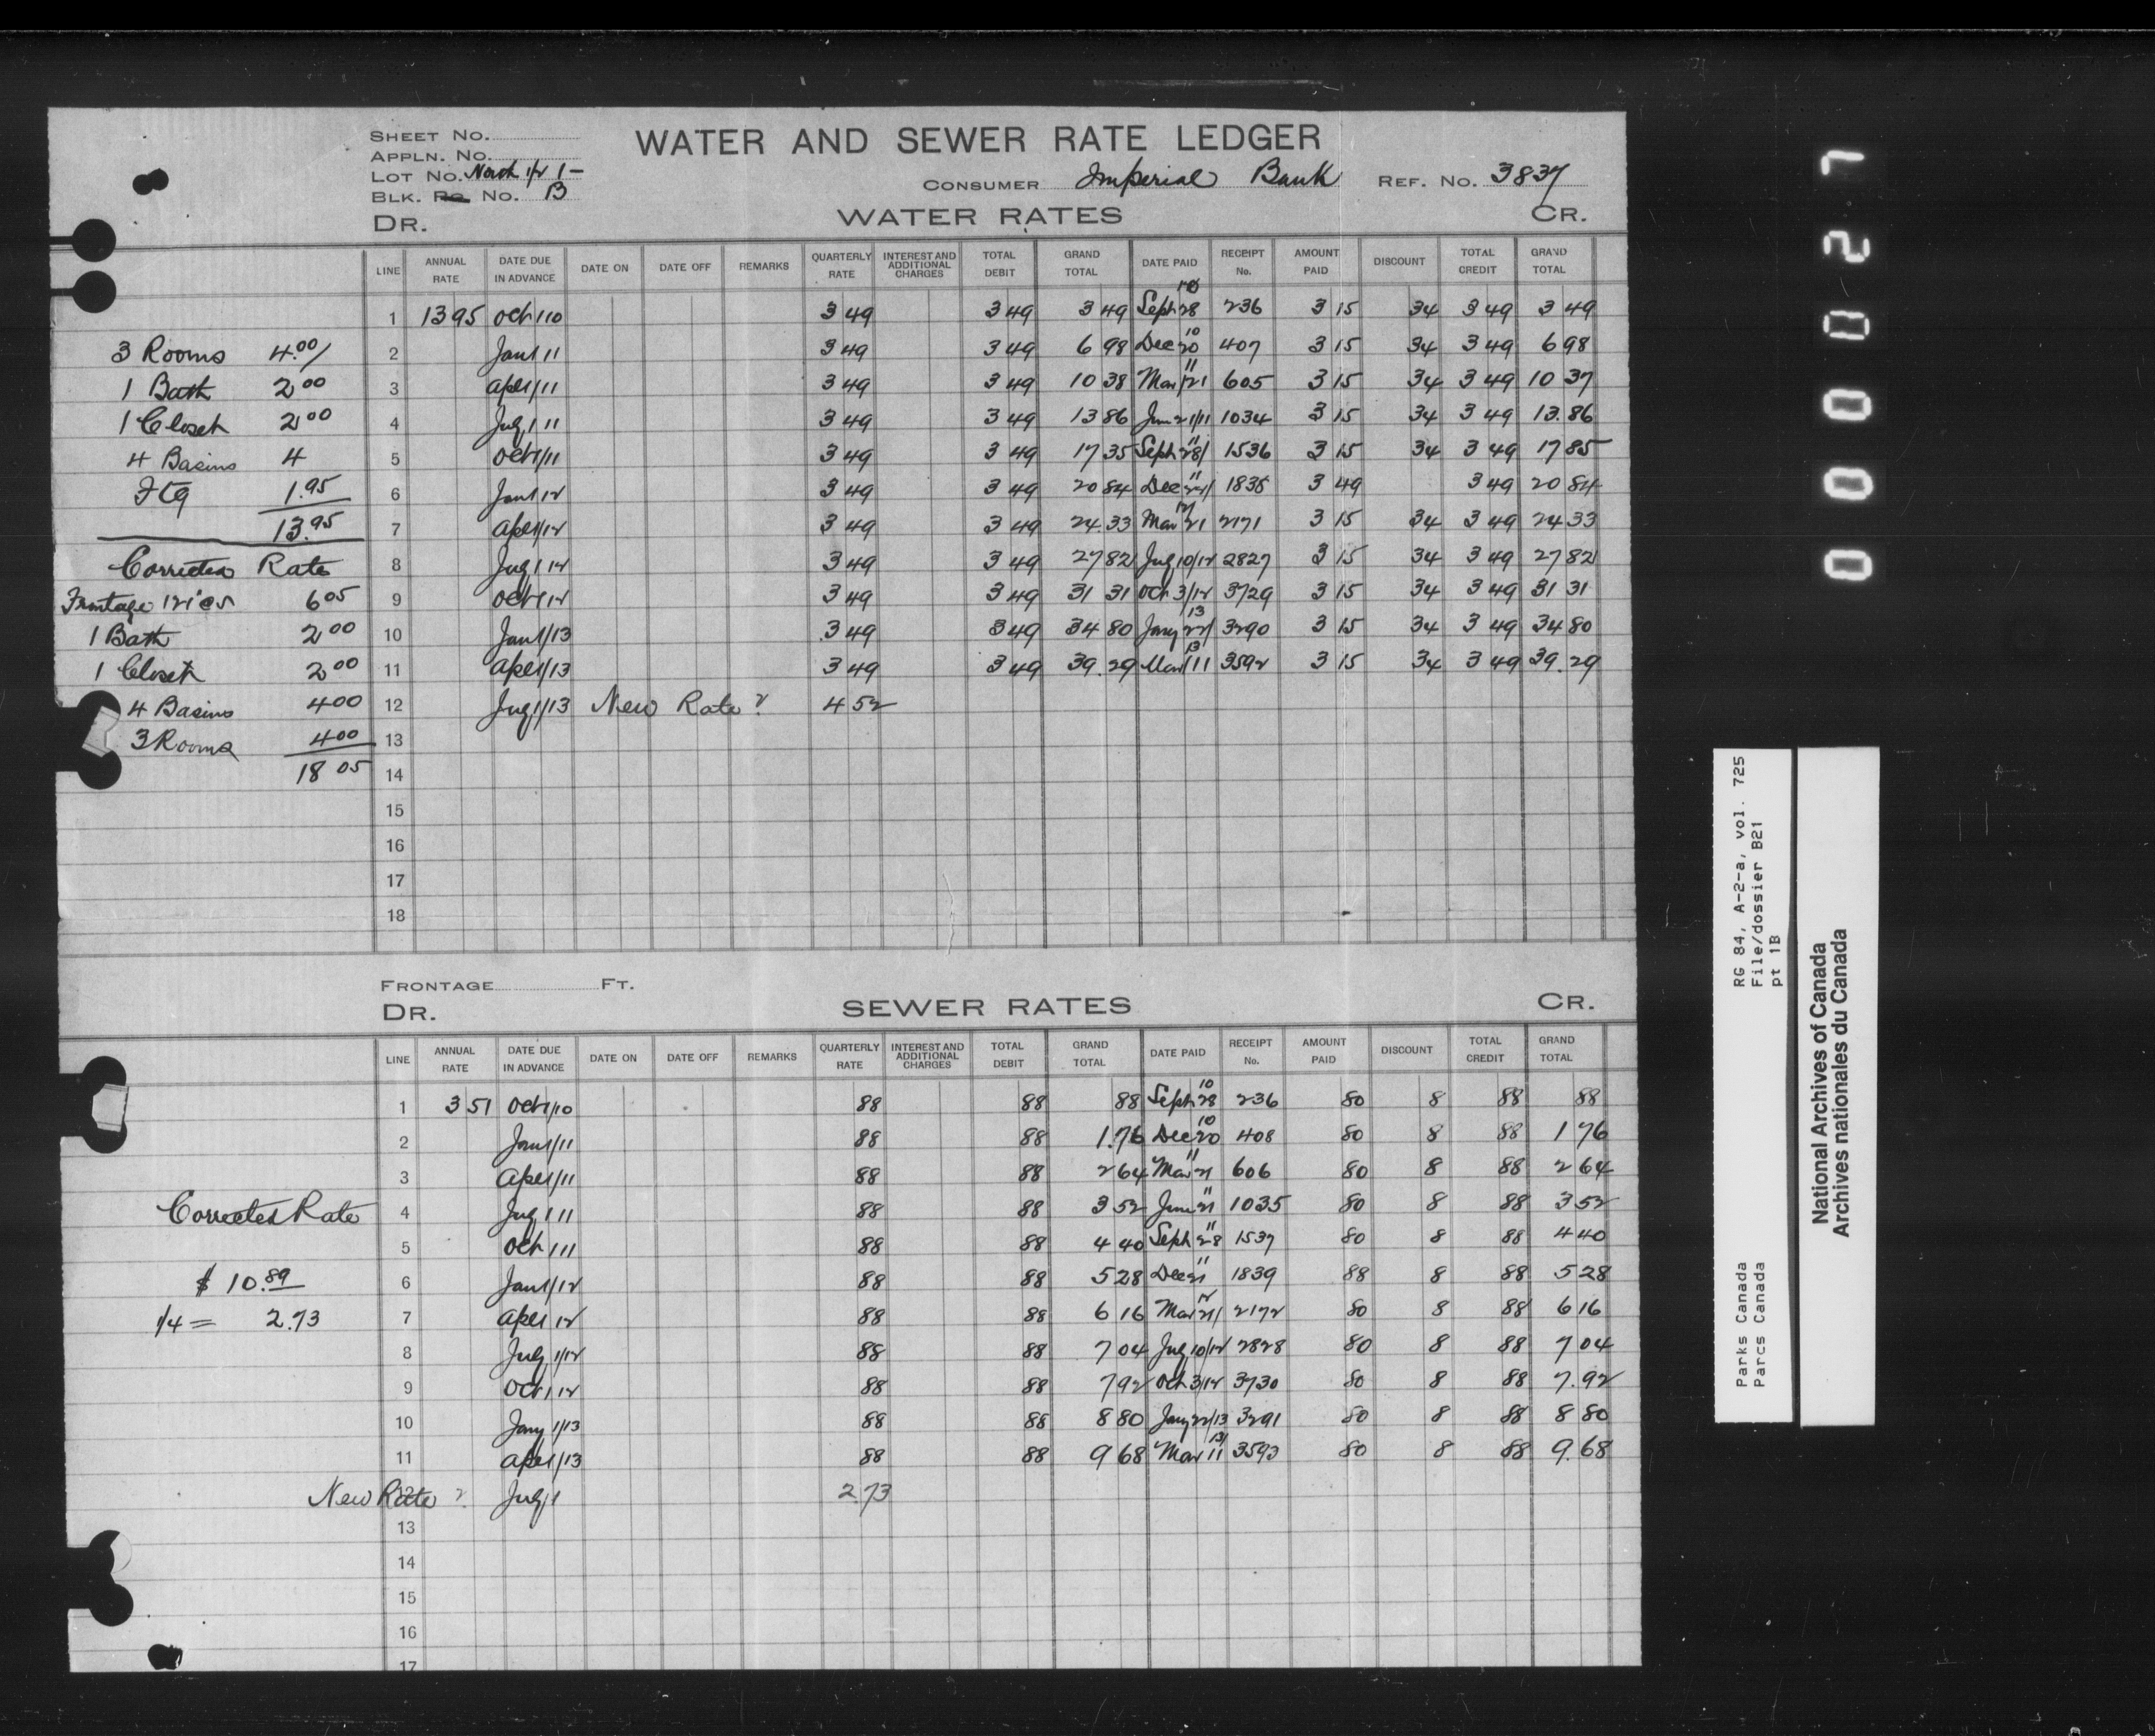 SHEET No.
WATER AND SEWER RATE LEDGER
APPLN. No.
LOT No. North 1/2 1 -
CONSUMER Imperial Bank REF. No. 3837
BLK. No. B
DR. WATER RATES CR.
LINE ANNUAL RATE DATE DUE IN ADVANCE DATE ON DATE OFF REMARKS QUARTERLY RATE INTEREST AND ADDITIONAL CHARGES TOTAL DEBIT GRAND TOTAL DATE PAID RECEIPT No. AMOUNT PAID DISCOUNT TOTAL CREDIT GRAND TOTAL
1 13 95 Oct 1 10 3 49 3 49 3 49 Sept 28 10 236 3 15 34 3 49 3 49
3 Rooms 4.00/ 2 Jan 1 11 3 49 3 49 6 98 Dec 20 10 407 3 15 34 3 49 6 98
1 Bath 2 00 3 Apl 1/11 3 49 3 49 10 38 Mar 21 11 605 3 15 34 3 49 10 37
1 Closet 2 00 4 July 1 11 3 49 3 49 13 86 Jun 21/11 1034 3 15 34 3 49 13.86
4 Basins 4 5 Oct 1/11 3 49 3 49 17 35 Sept 28/11 1536 3 15 34 3 49 17 85
Ftg 1.95 6 Jan 1 12 3 49 3 49 20 84 Dec 21/11 1838 3 49 3 49 20 84
13.95 7 Apl 1/12 3 49 3 49 24.33 Mar 21 12/ 2171 3 15 34 3 49 24 33
Corrected Rate 8 July 1 12 3 49 3 49 27 82 July 10/12 2827 3 15 34 3 49 27 82
Frontage 121' @ 5 6 05 9 Oct 1 12 3 49 3 49 31 31 Oct 3/12 3729 3 15 34 3 49 31 31
1 Bath 2 00 10 Jan 1/13 3 49 3 49 34 80 Jany 22/13 3290 3 15 34 3 49 34 80
1 Closet 2 00 11 Apl 1/13 3 49 3 49 39.29 Mar 11 13 3592 3 15 34 3 49 39.29
4 Basins 4 00 12 July 1/13 New Rate ? 4 52
3 Rooms 4 00 13
18 05 14
15
16
17
18
FRONTAGE FT.
DR. SEWER RATES CR.
LINE ANNUAL RATE DATE DUE IN ADVANCE DATE ON DATE OFF REMARKS QUARTERLY RATE INTEREST AND ADDITIONAL CHARGES TOTAL DEBIT GRAND TOTAL DATE PAID RECEIPT No. AMOUNT PAID DISCOUNT TOTAL CREDIT GRAND TOTAL
1 3 51 Oct 1/10 88 88 88 Sept 28 10 236 80 8 88 88
2 Jan 1/11 88 88 1.76 Dec 20 10 408 80 8 88 1 76
3 Apl 1/11 88 88 2 64 Mar 21 11 606 80 8 88 2 64
Corrected Rate 4 July 1 11 88 88 3 52 June 21 11 1035 80 8 88 3 52
5 Oct 1 11 88 88 4 40 Sept 28 11 1537 80 8 88 4 40
$ 10.89 6 Jan 1/12 88 88 5 28 Dec 21 11 1839 88 8 88 5 28
1/4 = 2.73 7 Apl 1 12 88 88 6 16 Mar 21/12 2172 80 8 88 6 16
8 July 1/12 88 88 7 04 July 10/12 2828 80 8 88 7 04
9 Oct 1 12 88 88 7 92 Oct 3/12 3730 80 8 88 7.92
10 Jany 1/13 88 88 8 80 Jany 22/13 3291 80 8 88 8 80
11 Apl 1/13 88 88 9 68 Mar 11 13/ 3593 80 8 88 9.68
New Rate ? 12 July 1 2.73
13
14
15
16
17
0000027
Parks Canada RG 84, A-2-a, vol. 725
Parcs Canada File/dossier B21
pt 1B
National Archives of Canada
Archives nationales du Canada